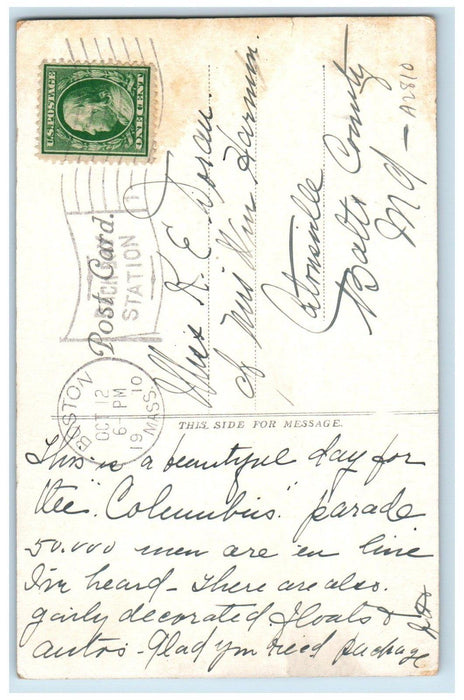 U.S. POSTAGE
ONE CENT
Post Card
STATION
1
BOSTON
OCT 12
6- PM
1910
MASS.
Miss R. E. Doran.
c/o Mrs Wm Harmon.
Catonsville
Balto County
Md -
A2810
THIS SIDE FOR MESSAGE.
This is a beautiful day for
the "Columbus" parade
50.000 men are en line
I'm heard - There are also
gaily decorated floats &
autos - Glad you recd package